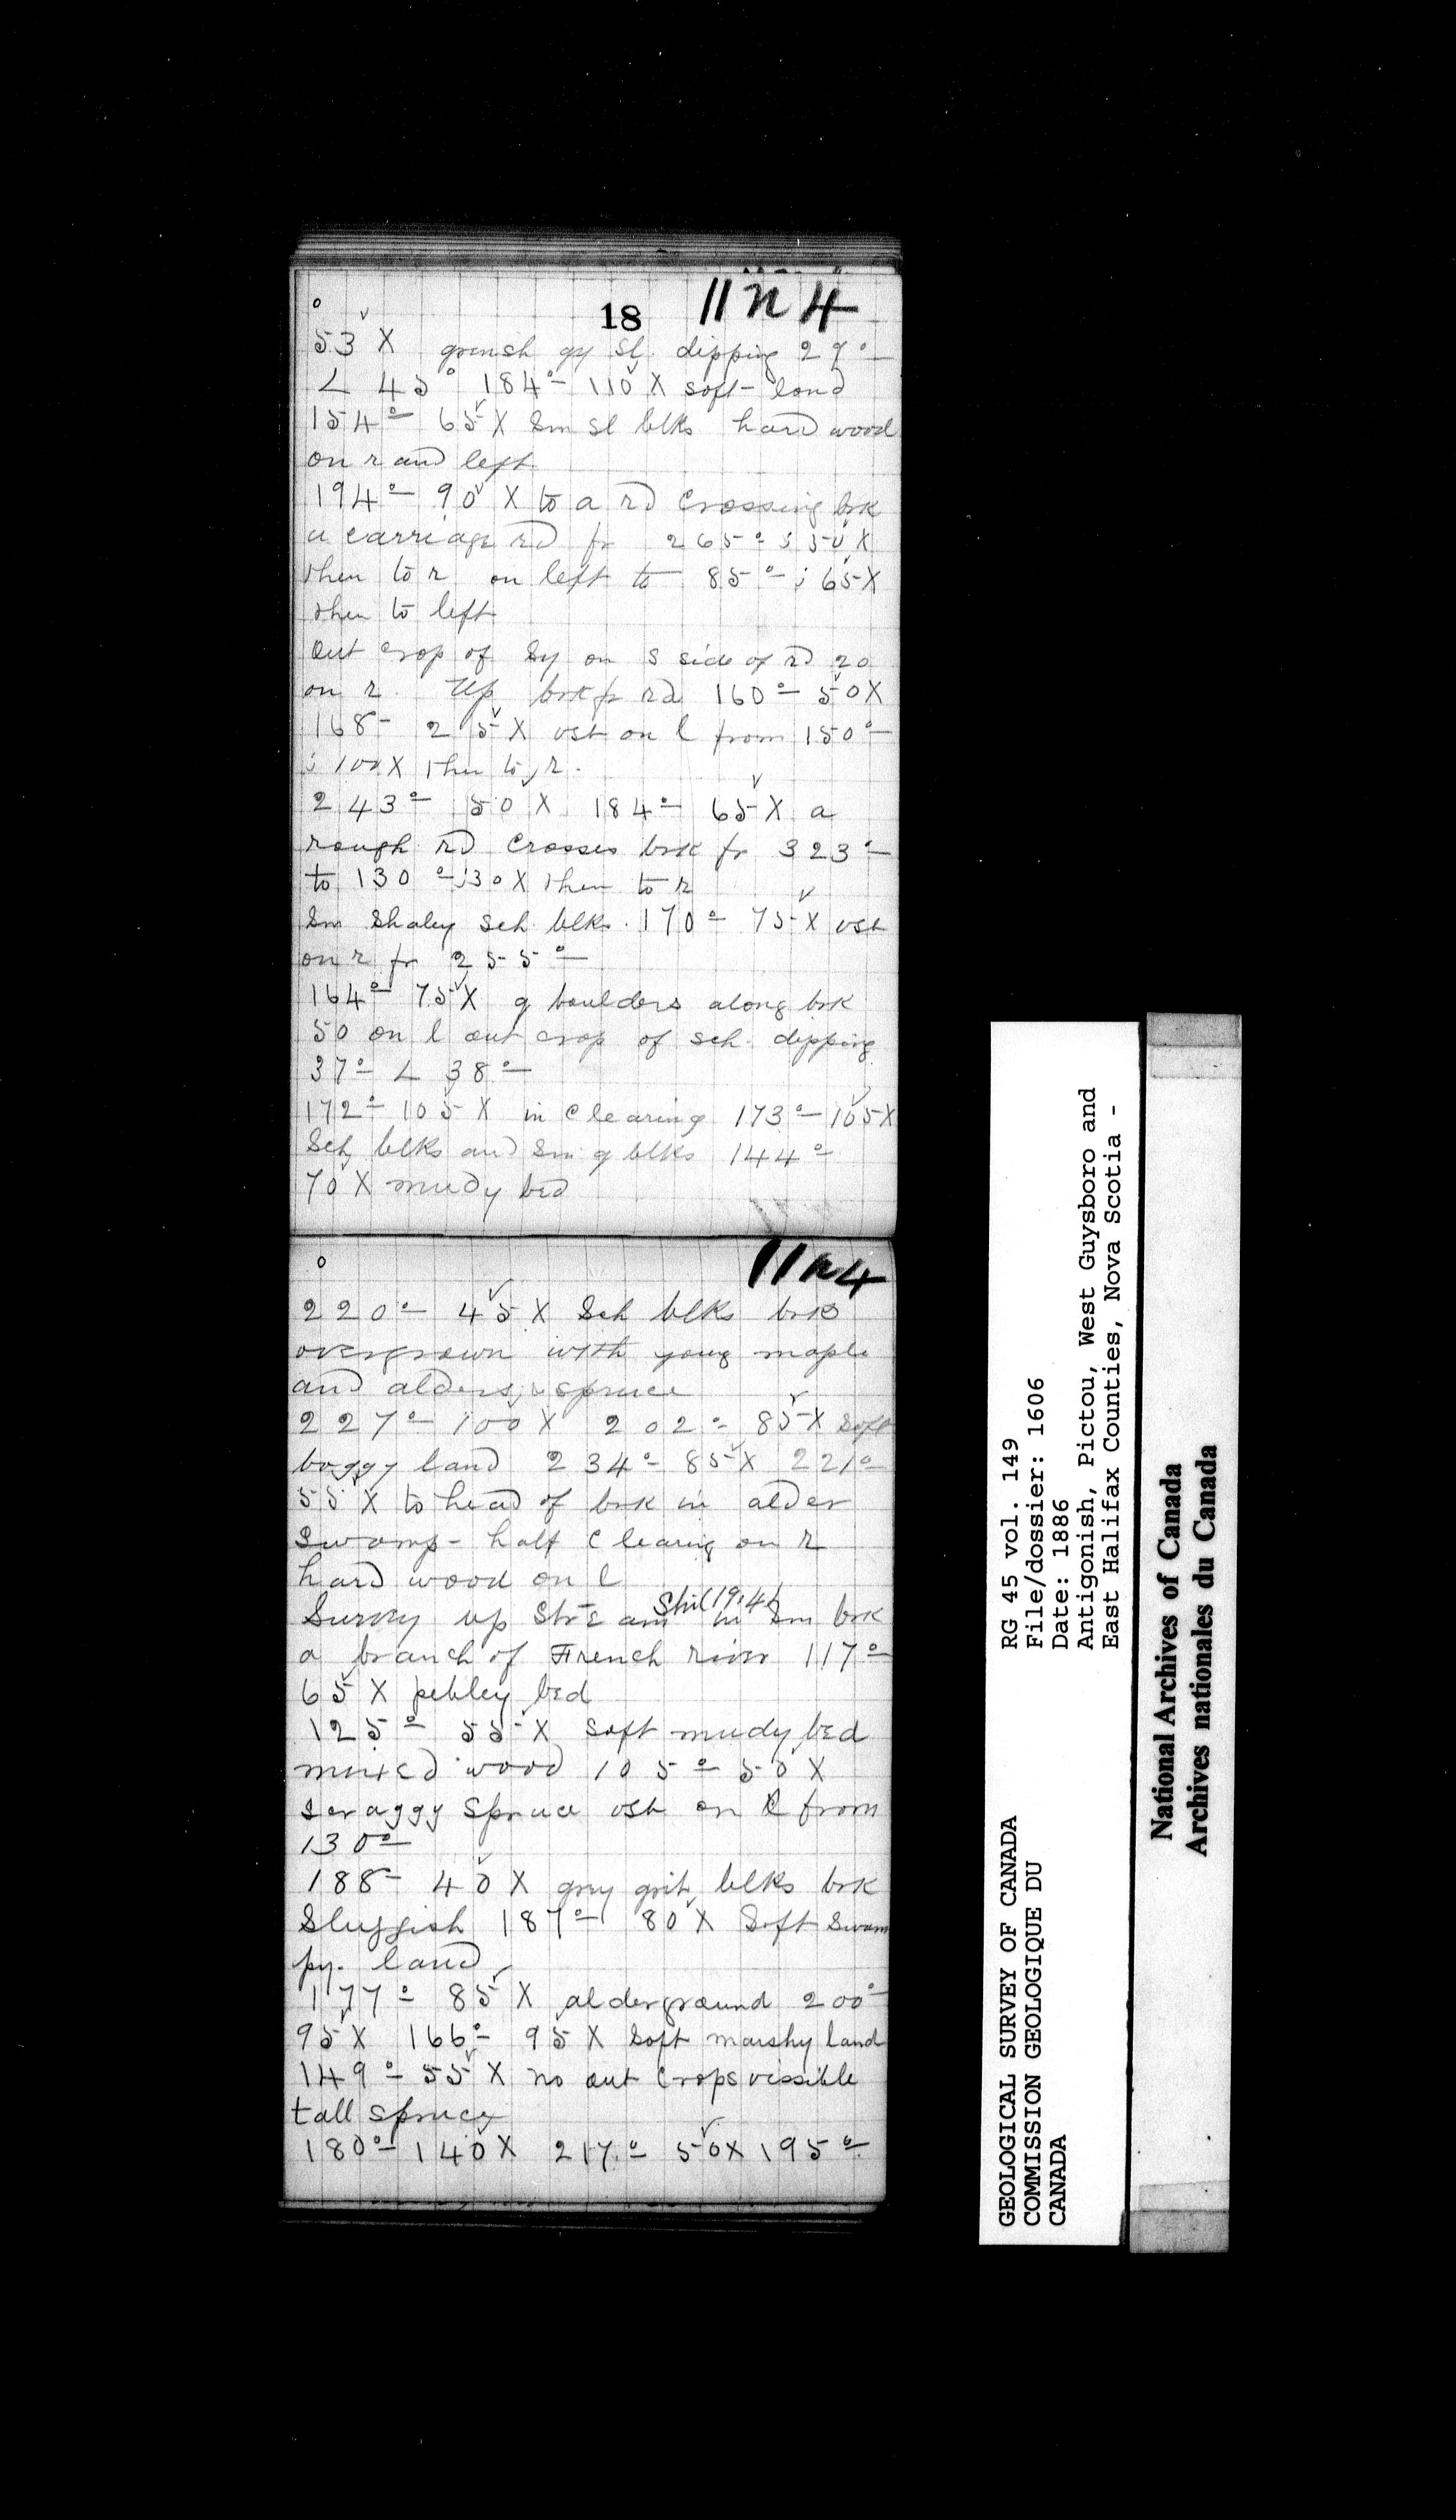 18 11 n 4
53 X grensh gy sl. dipping 29°
∠ 45° 184° 110 X soft land
154° 65 X Sm sl blks hard wood
on r and left
194° 90 X to a rd crossing brk
a carriage rd fr 265° ; 50 X
then to r on left to 85° ; 65 X
then to left
Out crop of Sy on S side of rd 20
on r. Up brk fr rd 160° 50 X
168° 25 X vst on l from 150°
; 100 X then to r.
243° 50 X 184° 65 X a
rough rd Crosses brk fr 323°
to 130° ; 30 X then to r
Sm Shaley Sch blks. 170° 75 X vst
on r fr 255°
164° 75 X g boulders along brk
50 on l out crop of sch. dipping
37° ∠ 38°
172° 105 X in Clearing 173° 105 X
Sch blks and Sm g blks 144°
70 X mudy bed
11 n 4
220° 45 X Sch blks brk
overgrown with young maple
and alders, & spruce
227° 100 X 202° 85 X soft
boggy land 234° 85 X 221°
55 X to head of brk in alder
Swamp - half Clearing on r
hard wood on l
Survey up Stream in Sm brk
a branch of French river 117°
65 X pebley bed
125° 55 X soft mudy bed
mixed wood 105° 50 X
scraggy spruce vst on l from
130°
188° 40 X grey grit blks brk
Sluggish 187° 80 X Soft Swam
py. land
177° 85 X alderground 200°
95 X 166° 95 X Soft marshy land
149° 55 X no out Crops vissible
tall spruce
180° 140 X 217° 50 X 195°
GEOLOGICAL SURVEY OF CANADA
COMMISSION GEOLOGIQUE DU
CANADA
RG 45 vol. 149
File/dossier: 1606
Date: 1886
Antigonish, Pictou, West Guysboro and
East Halifax Counties, Nova Scotia -
National Archives of Canada
Archives nationales du Canada